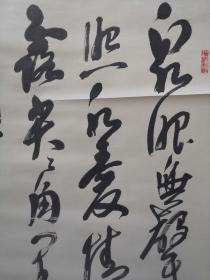 泉眼無聲
照水愛晴
露尖々角早